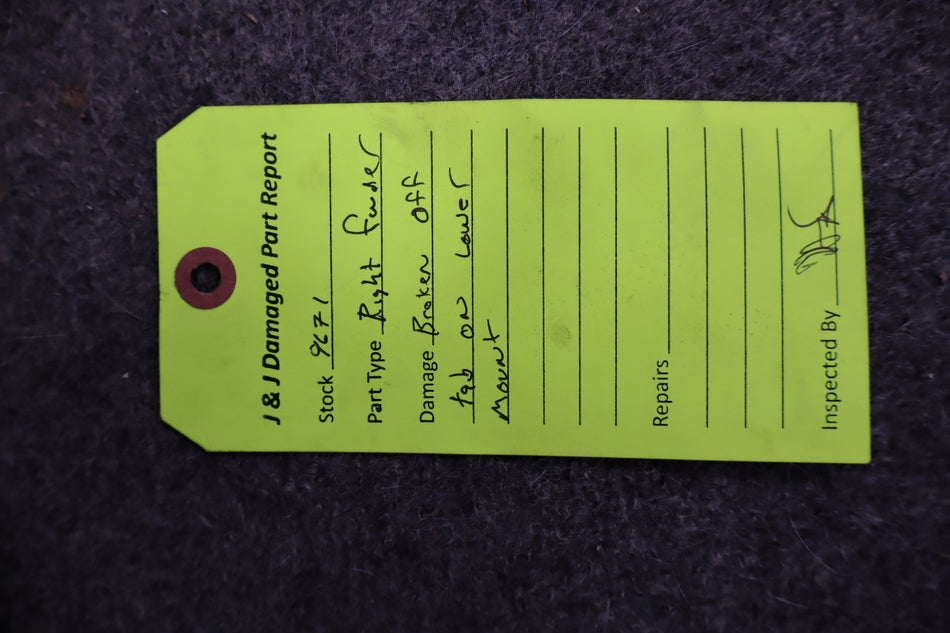 J & J Damaged Part Report
Stock 9671
Part Type Right fender
Damage Broken off
tab on Lower
Mount
Repairs
Inspected By